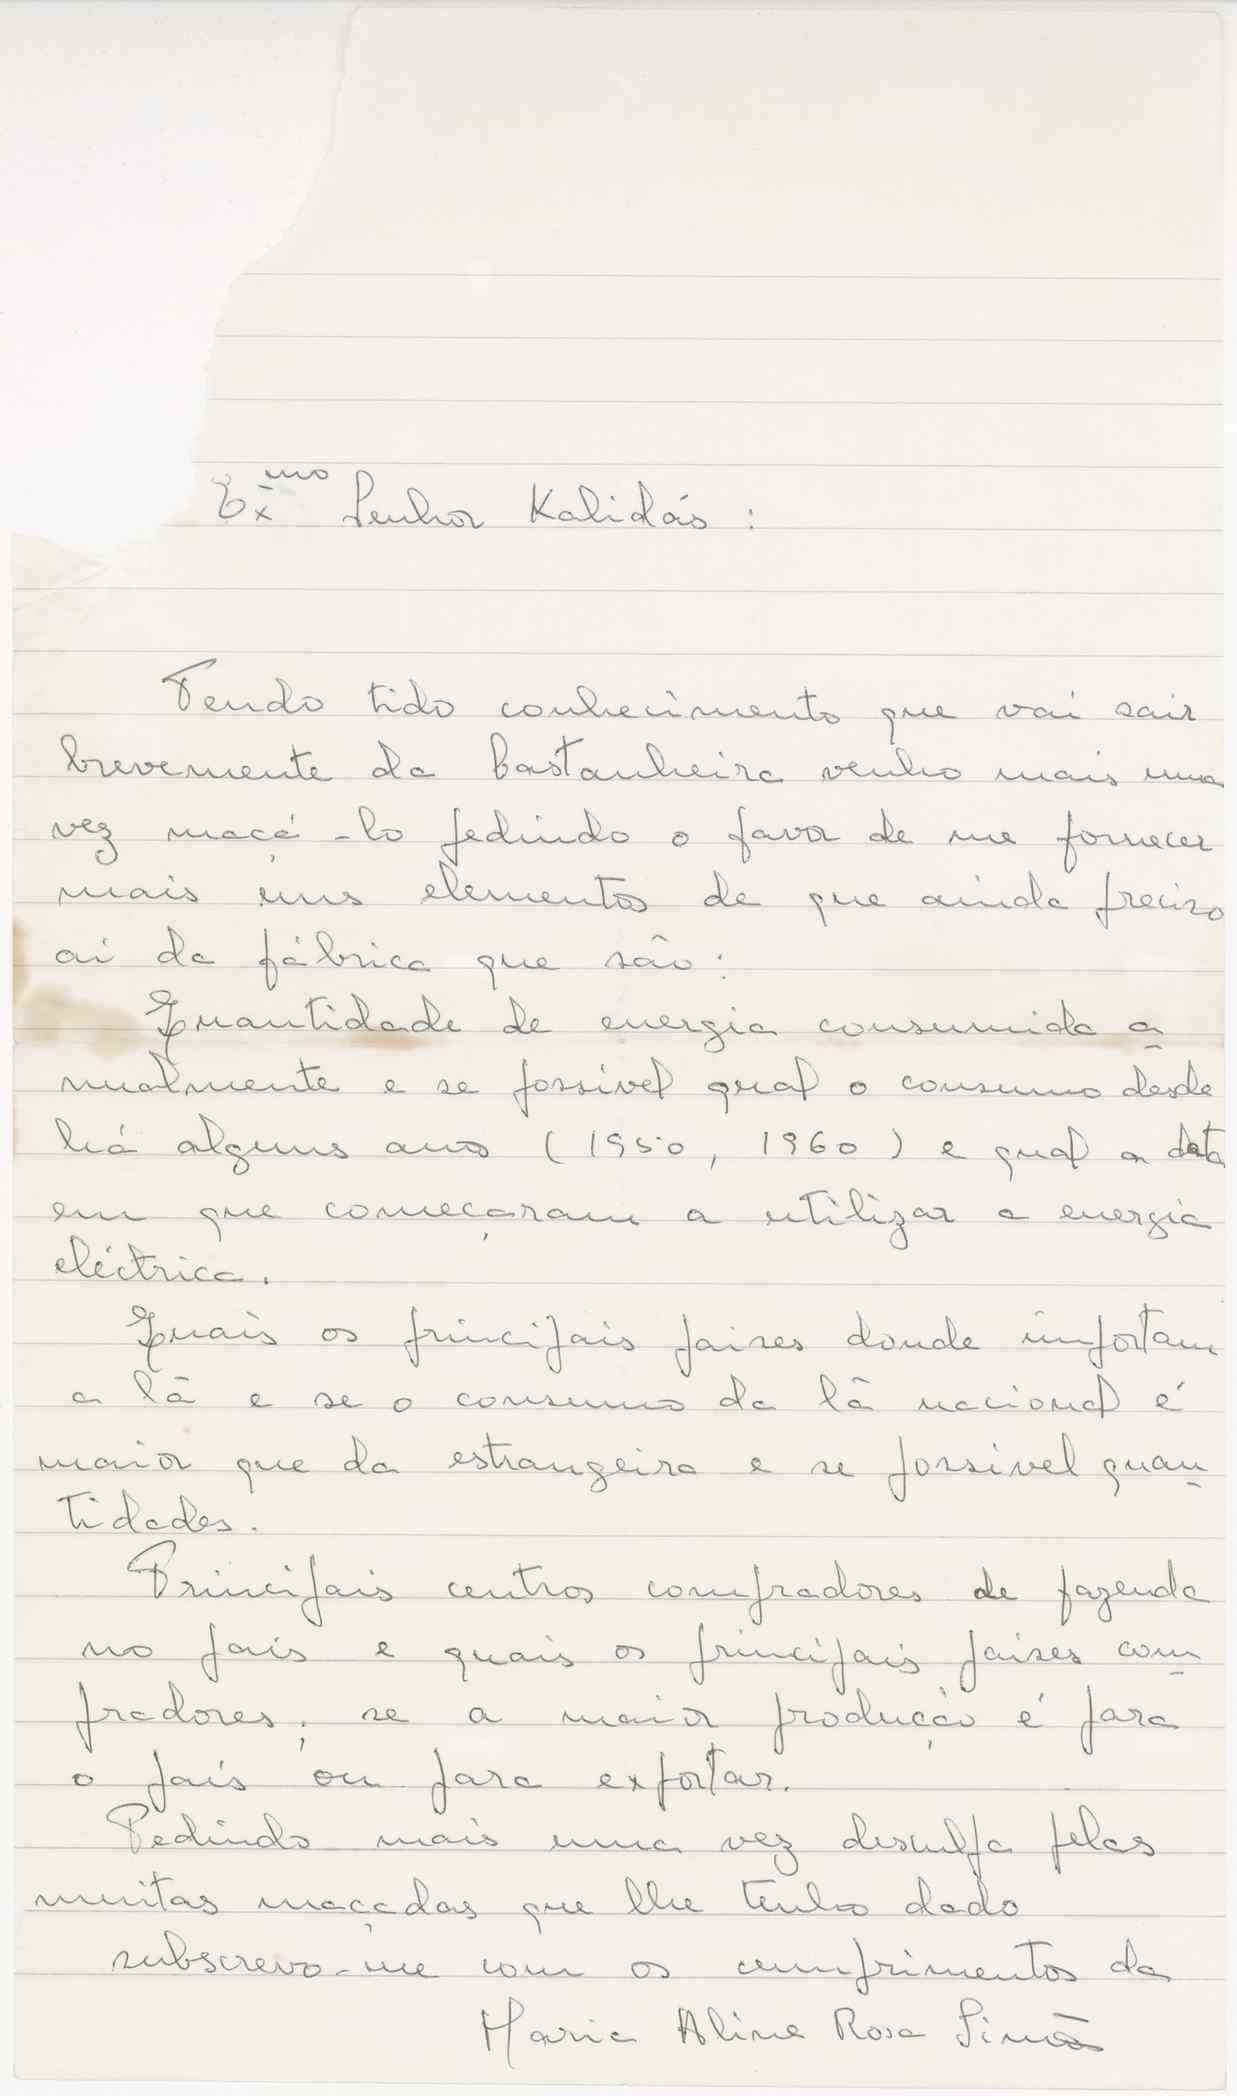 Exmo Senhor Kalidás :
Tendo tido conhecimento que vai sair
brevemente da Castanheira venho mais uma
vez maçá-lo pedindo o favor de me fornecer
mais uns elementos de que ainda preciso
aí da fábrica que são:
Quantidade de energia consumida a
nualmente e se possivel qual o consumo desde
há alguns anos (1950, 1960) e qual a data
em que começaram a utilizar a energia
eléctrica.
Quais os principais paises donde importam
a lã e se o consumo da lã nacional é
maior que da estrangeira e se possivel quan
tidades.
Principais centros compradores de fazenda
no pais e quais os principais paises com
pradores; se a maior produção é para
o país ou para exportar.
Pedindo mais uma vez desculpa pelas
muitas maçadas que lhe tenho dado
subscrevo-me com os cumprimentos da
Maria Aline Rosa Simão